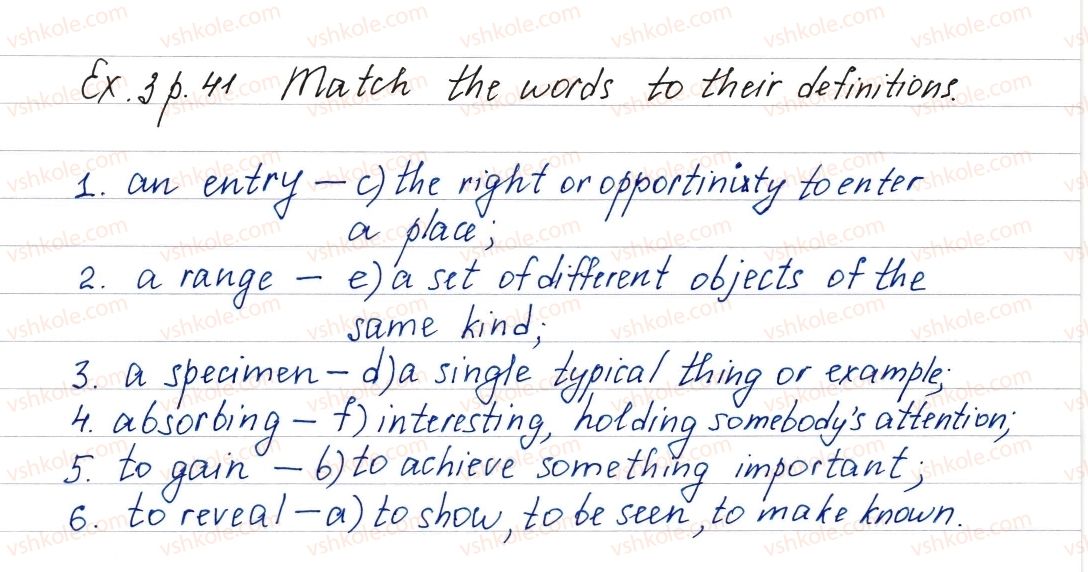 Ex. 3 p. 41 Match the words to their definitions.
1. an entry – c) the right or opportinity to enter
a place;
2. a range – e) a set of different objects of the
same kind;
3. a specimen – d) a single typical thing or example;
4. absorbing – f) interesting, holding somebody's attention;
5. to gain – b) to achieve something important;
6. to reveal – a) to show, to be seen, to make known.